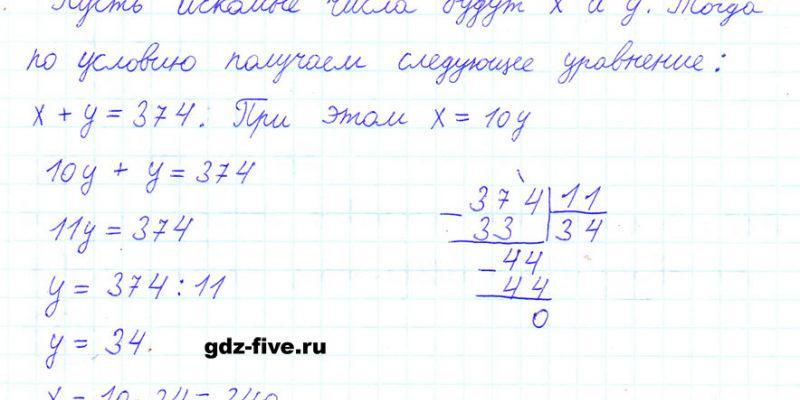 Пусть искомые числа будут x и y. Тогда
по условию получаем следующее уравнение:
x + y = 374. При этом x = 10y
10y + y = 374
11y = 374
y = 374 : 11
y = 34.
x = 10 · 34 = 340
374 | 11
33 | 34
44
44
0
gdz-five.ru